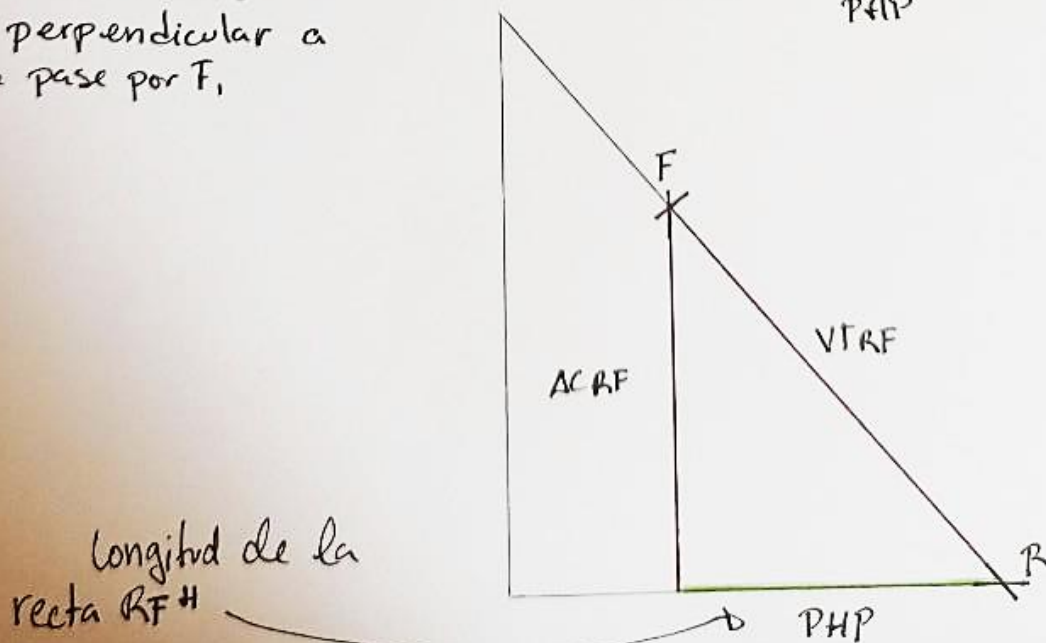 PHP
perpendicular a
pase por F,
F
VTRF
ACRF
R
longitud de la
recta RF H
PHP